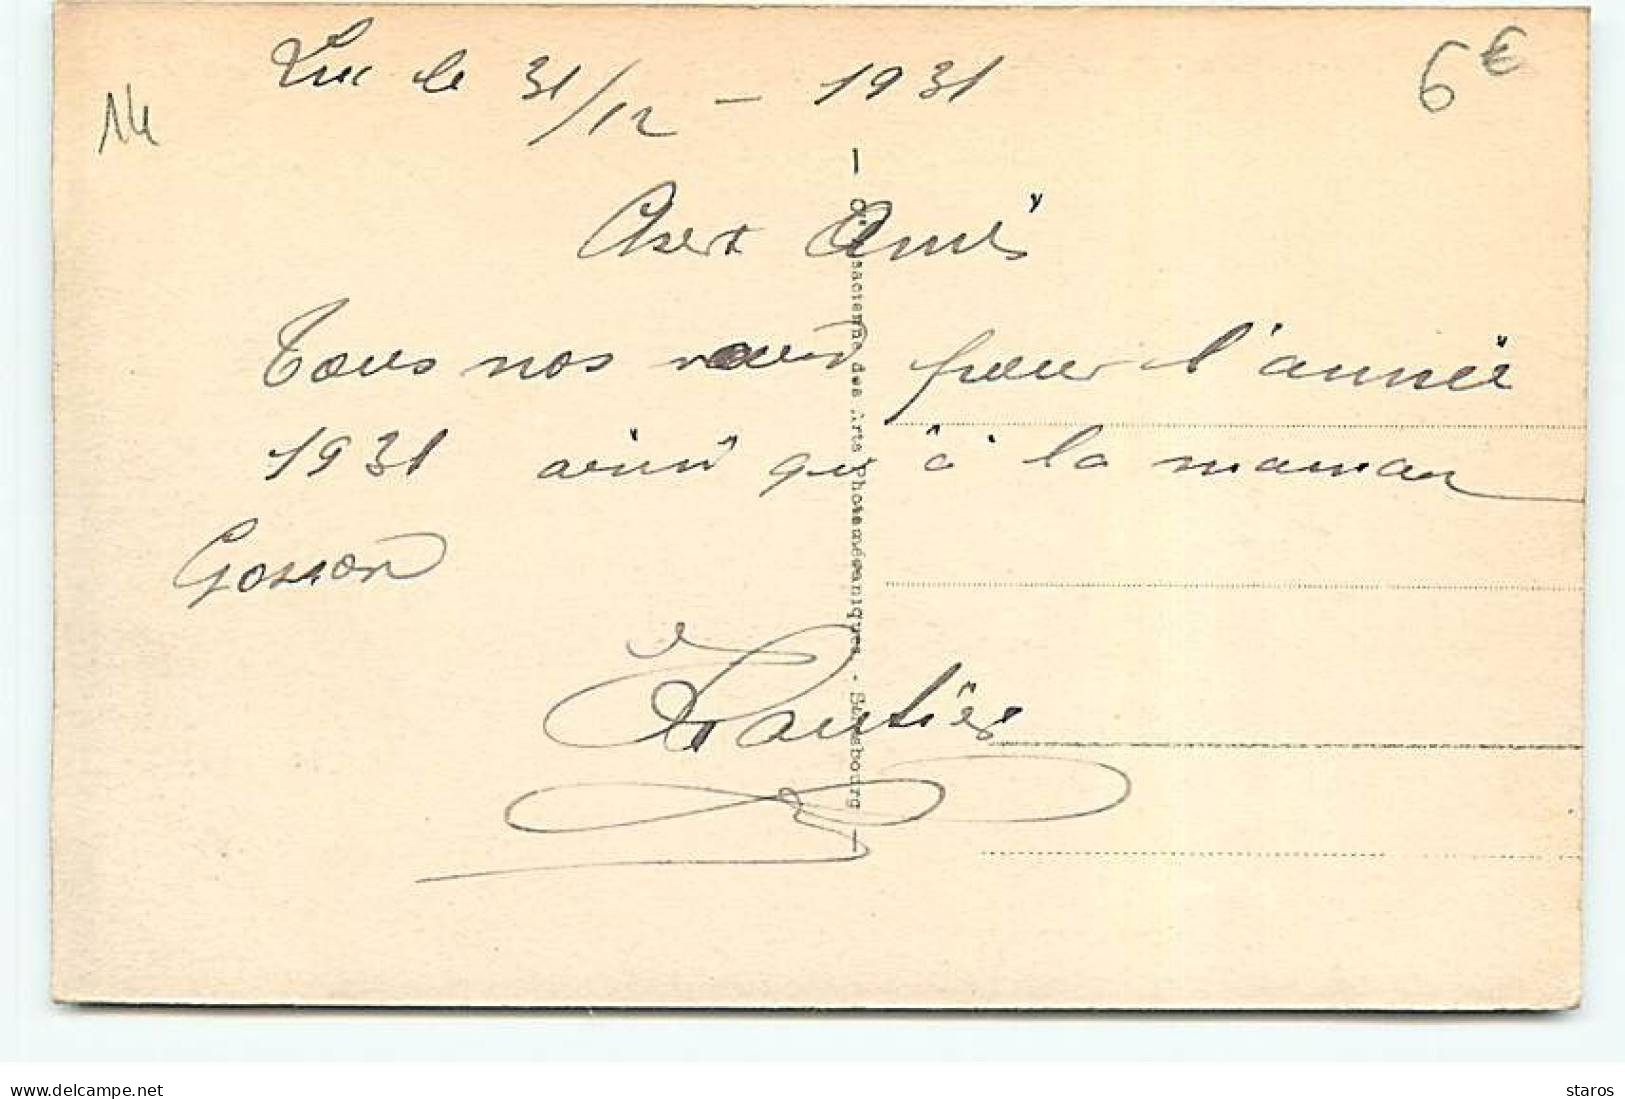 Luc le 31/12 - 1931
6€
14
Chers Amis
Tous nos vœux pour l'année
1931 ainsi qu'à la maman
Gosson
Vautier
— Cie Alsacienne des Arts Photomécaniques. - Strasbourg —
www.delcampe.net
staros